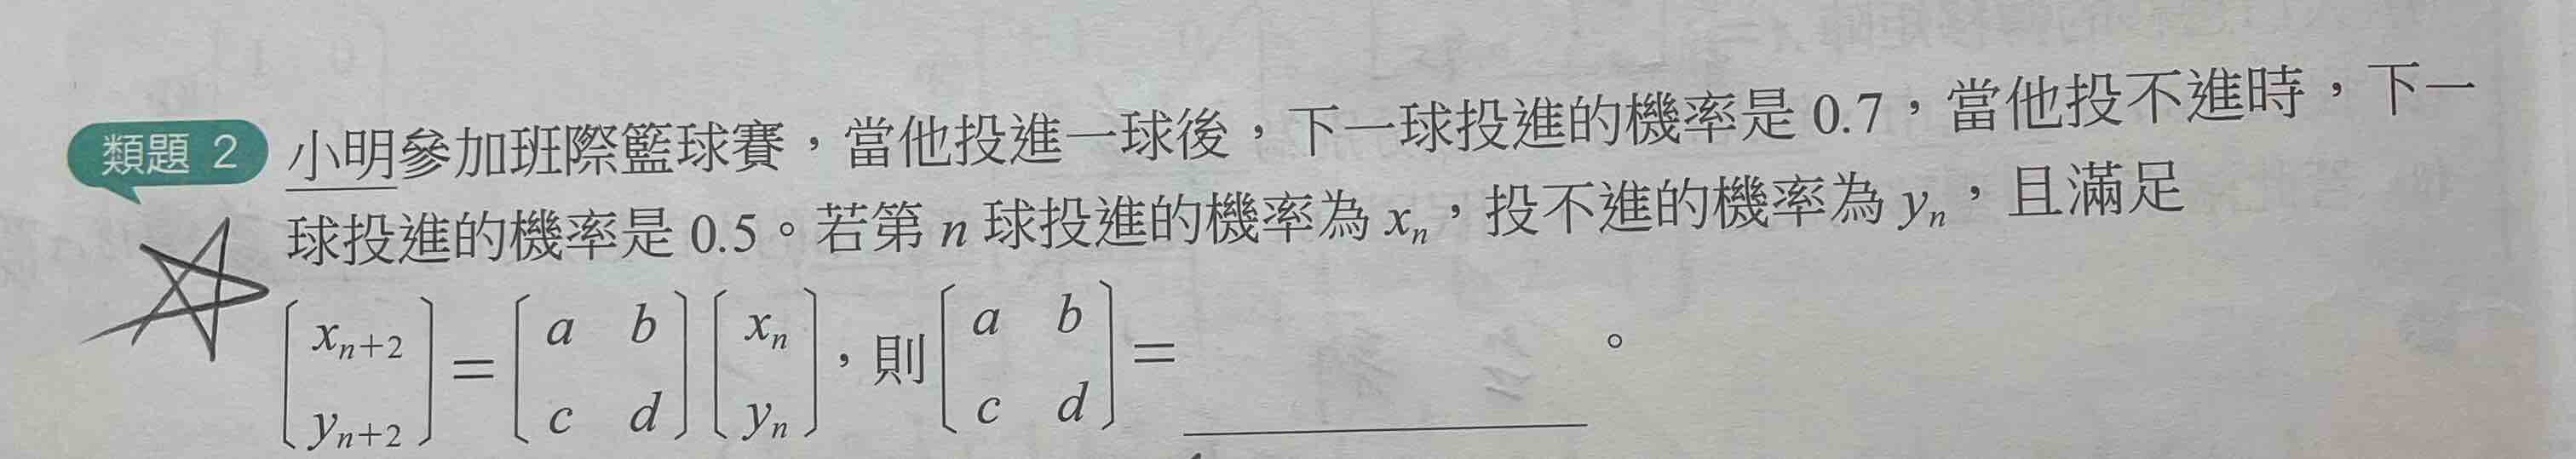 類題 2 小明參加班際籃球賽，當他投進一球後，下一球投進的機率是 0.7，當他投不進時，下一
球投進的機率是 0.5。若第 n 球投進的機率為 xₙ，投不進的機率為 yₙ，且滿足
[xₙ₊₂ yₙ₊₂] = [a b c d] [xₙ yₙ]，則 [a b c d] = ______。